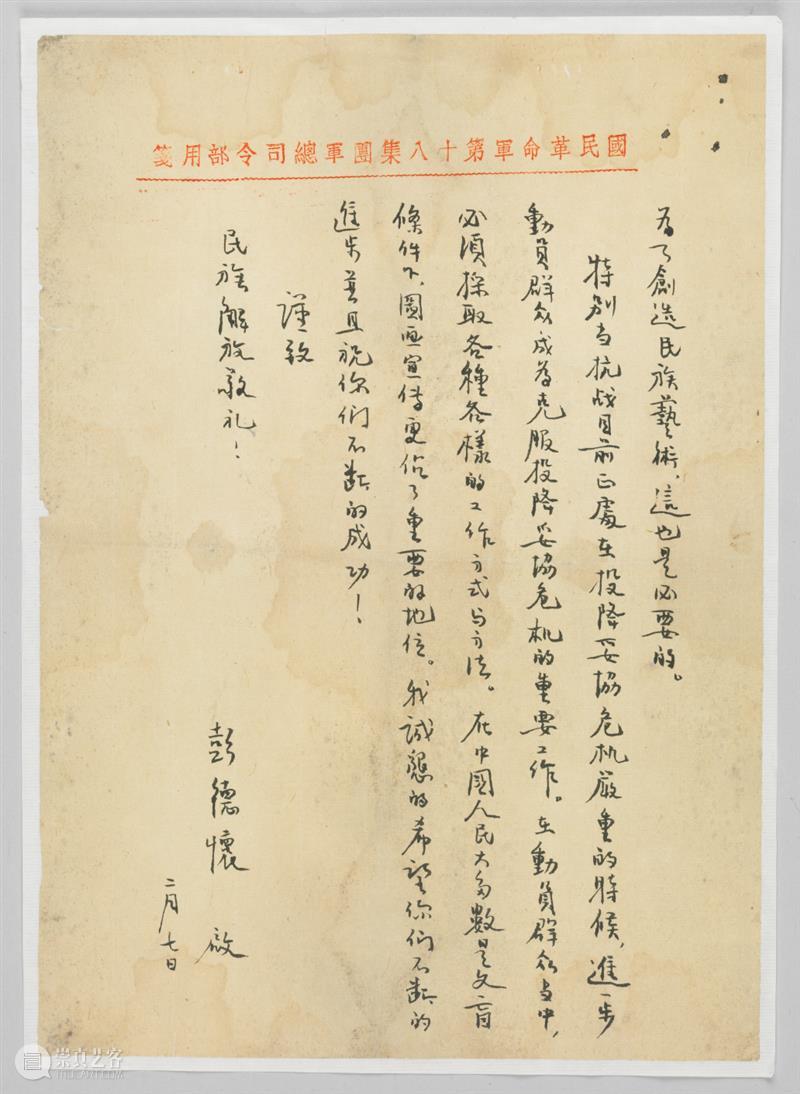 國民革命軍第十八集團軍總司令部用箋
為了創造民族藝術,這也是必要的。
特别当抗战目前正處在投降妥協危机嚴重的時候,進一步
動員群众成為克服投降妥協危机的重要工作。在動員群众当中,
必須採取各種各樣的工作方式与方法。在中國人民大多數是文盲
條件下,圖画宣传更佔了重要的地位。我誠懇的希望你们不断的
進步並且祝你们不断的成功!
谨致
民族解放敬礼!
彭德懷 啟
二月七日
崇真艺客
TRUEART.COM